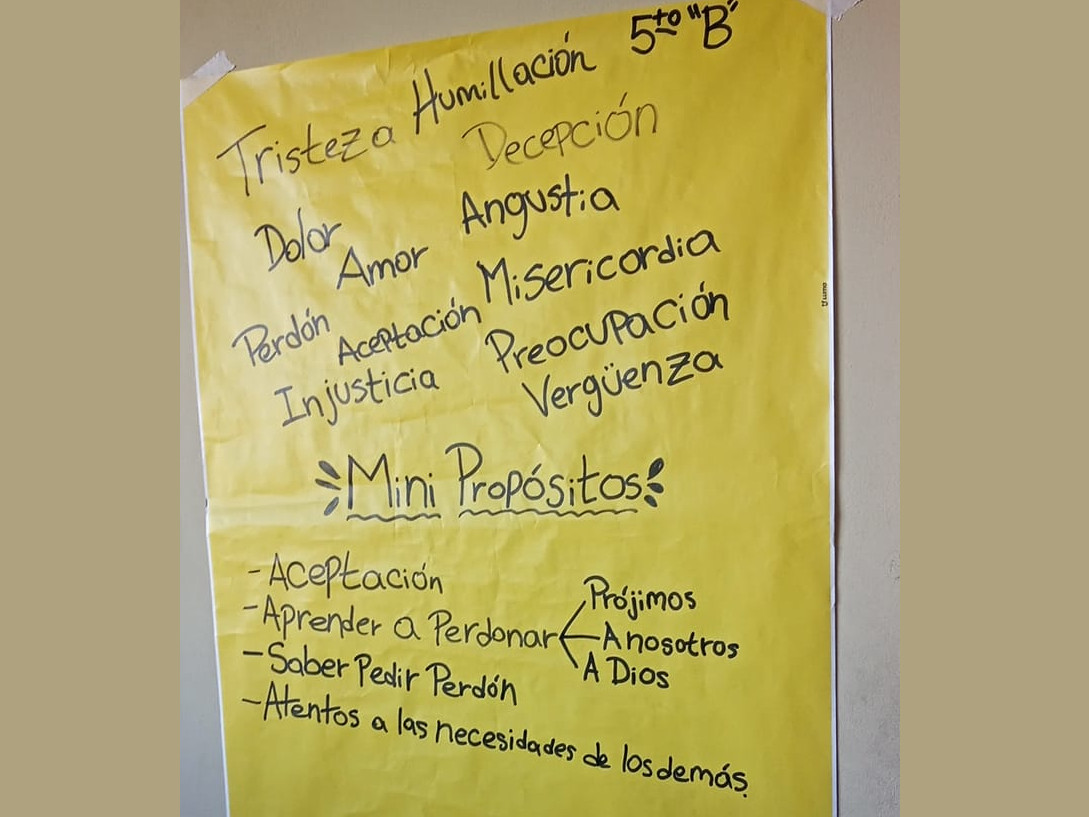 5to "B"
Humillación
Tristeza
Decepción
Dolor
Angustia
Amor
Misericordia
Perdón
Aceptación
Preocupación
Injusticia
Vergüenza
Mini Propósitos
- Aceptación
- Aprender a Perdonar
Prójimos
A nosotros
A Dios
- Saber Pedir Perdón
- Atentos a las necesidades de los demás.